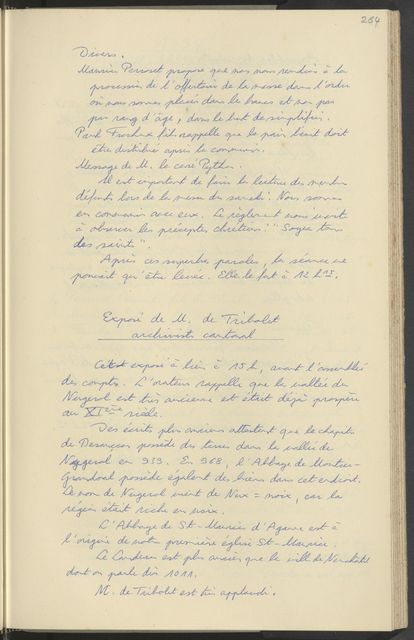 254
Divers.
Maurice Perroset propose que nous nous rendions à la
procession de l'offertoire de la messe dans l'ordre
où nous sommes placés dans les bancs et non pas
par rang d'âge, dans le but de simplifier.
Paul Frochaux fils rappelle que le pain bénit doit
être distribué après la communion.
Message de M. le curé Python.
Il est important de faire la lecture des membres
défunts lors de la messe du samedi. Nous sommes
en communion avec eux. Le règlement nous invite
à observer les préceptes chrétiens: "Soyez tous
des saints".
Après ces superbes paroles, la séance ne
pouvait qu'être levée. Elle le fut à 12 h 15.
Exposé de M. de Tribolet
archiviste cantonal
Cet exposé a lieu à 15 h, avant l'assemblée
des comptes. L'orateur rappelle que la vallée de
Nugerol est très ancienne et était déjà prospère
au XIème siècle.
Des écrits plus anciens attestent que le chapitre
de Besançon possède des terres dans la vallée de
Nugerol en 959. En 968, l'Abbaye de Moutier-
Grandval possède également des biens dans cet endroit.
Le nom de Nugerol vient de Nux = noix, car la
région était riche en noix.
L'Abbaye de St-Maurice d'Agaune est à
l'origine de notre première église St-Maurice.
Le Landeron est plus ancien que la ville de Neuchâtel
dont on parle dès 1011.
M. de Tribolet est très applaudi.